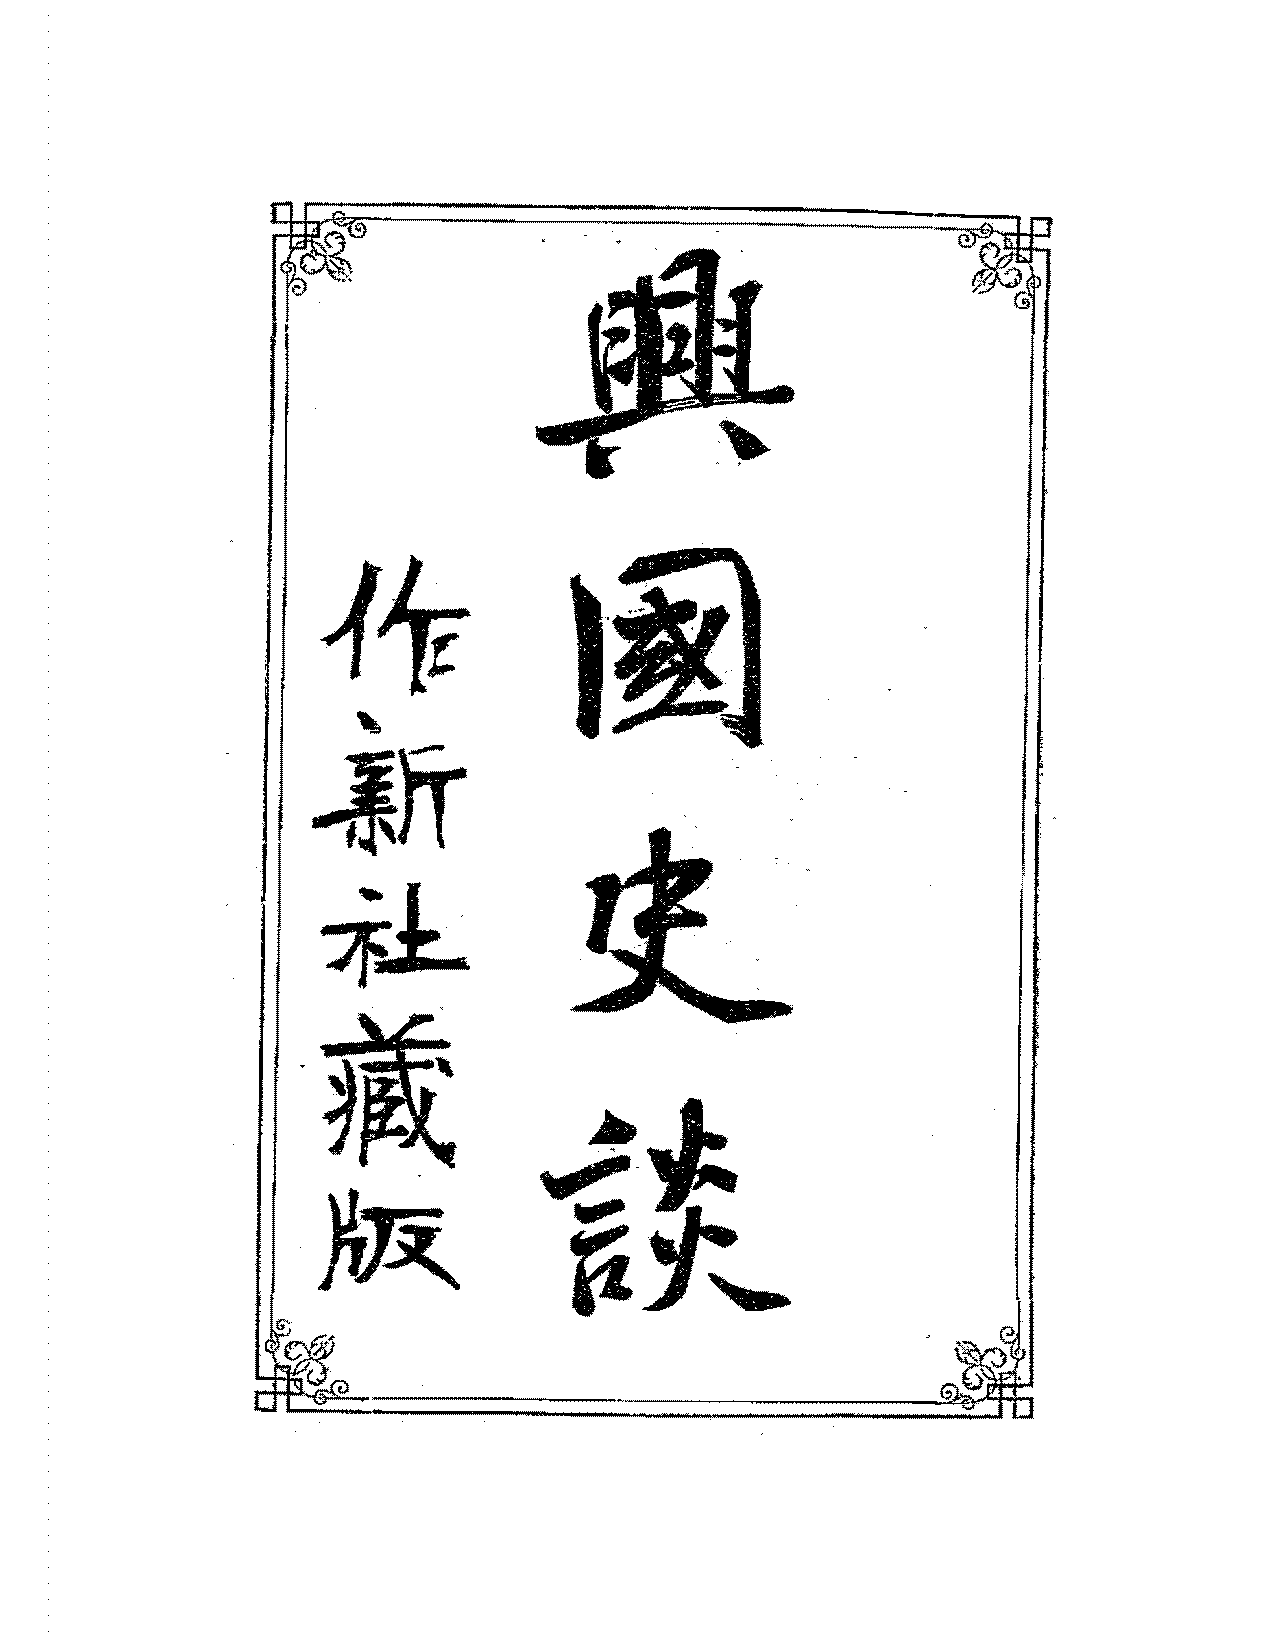 興國史談
作新社藏版